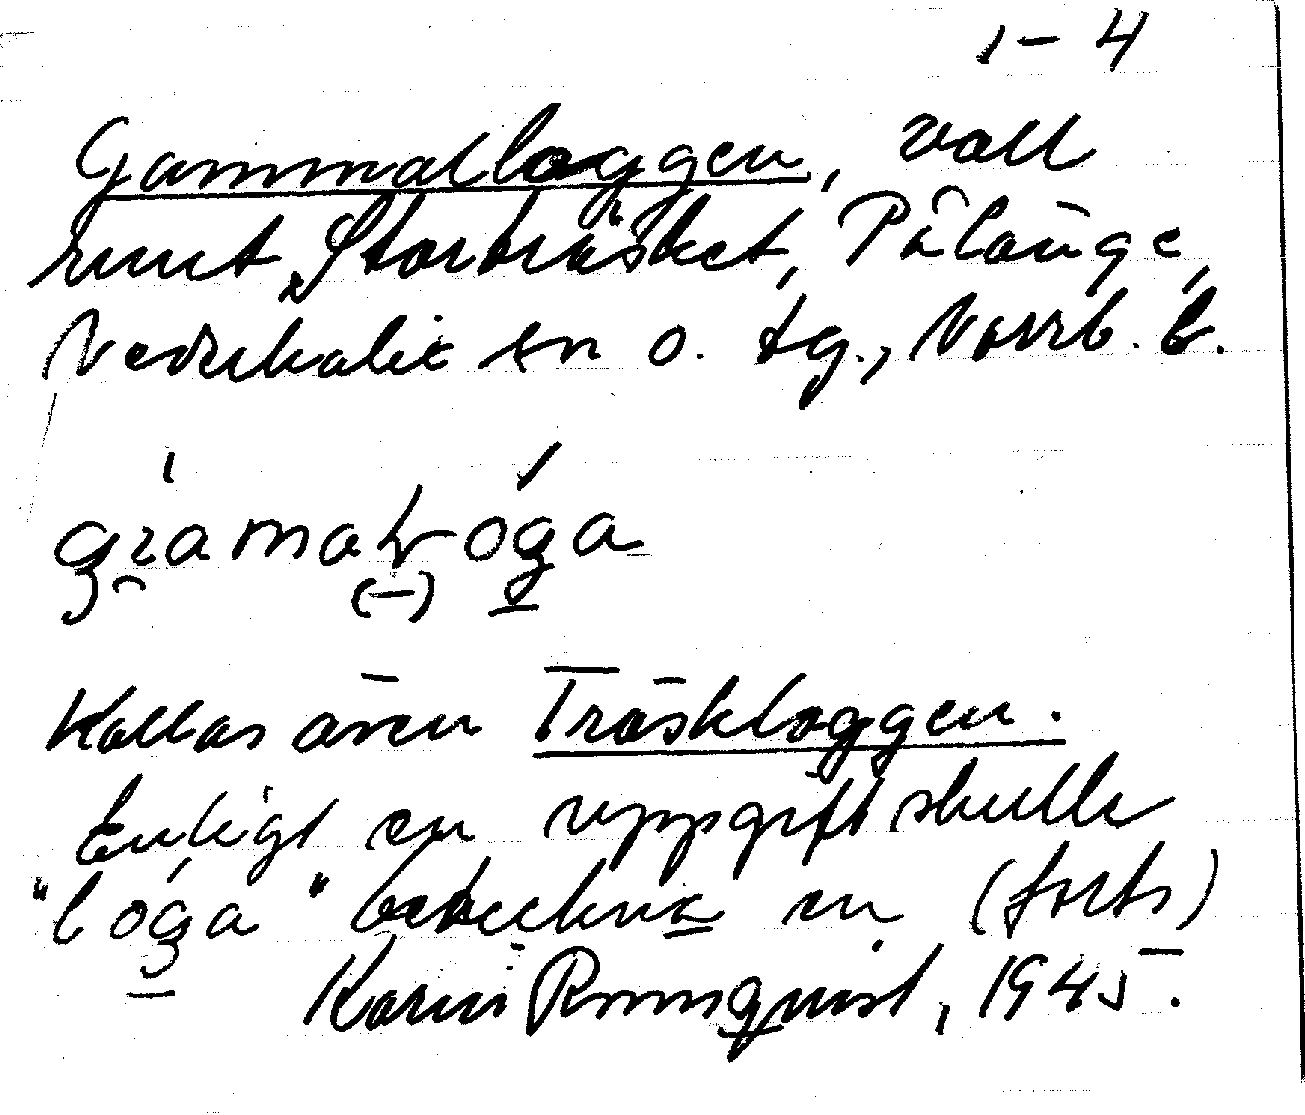 1-4
Gammalloggen, vall
runt Storträsket, Pålänge,
Nederkalix sn o. tg., Norrb. l.
Kallas även Träskloggen.
Enligt en uppgift skulle
"lóga" beteckna en (forts)
Karin Ronnquist, 1945.